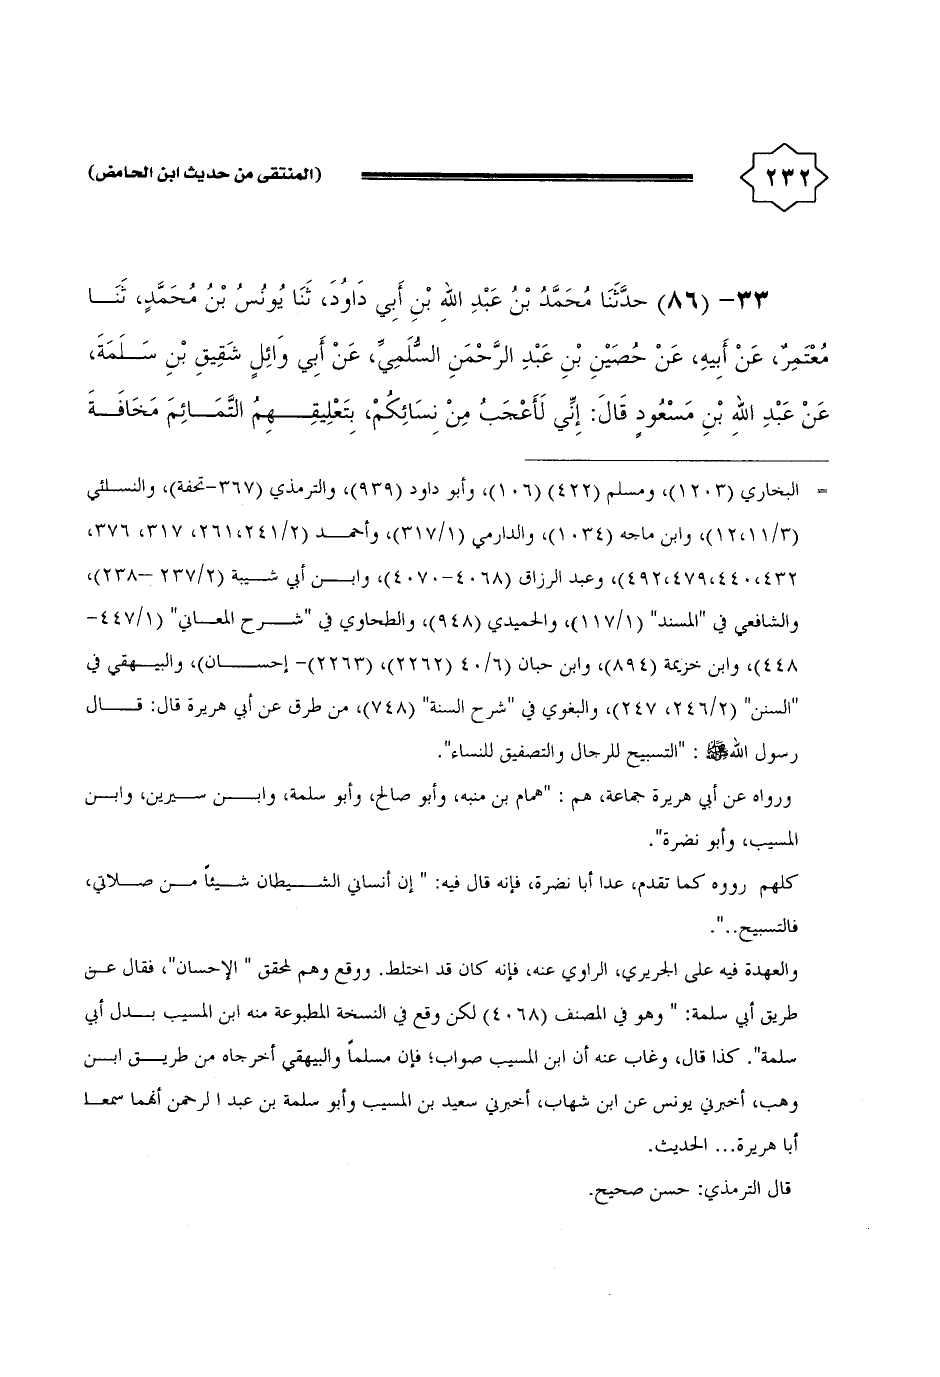 ٢٣٢ (المنتقى من حديث ابن الحامض)
٣٣- (٨٦) حدَّثَنَا مُحَمَّدُ بْنُ عَبْدِ اللهِ بْنِ أَبي دَاوُدَ، ثَنَا يُونُسُ بْنُ مُحَمَّدٍ، ثَنَـا
مُعْتَمِرٌ، عَنْ أَبيهِ، عَنْ حُصَيْنِ بْنِ عَبْدِ الرَّحْمَنِ السُّلَمِيِّ، عَنْ أَبي وَائِلٍ شَقِيقِ بْنِ سَـلَمَةَ،
عَنْ عَبْدِ اللهِ بْنِ مَسْعُودٍ قَالَ: إِنِّي لَأَعْجَبُ مِنْ نِسَائِكُمْ، بِتَعْلِيقِـهِمُ التَّمَـائِمَ مَخَافَـةَ
= البخاري (١٢٠٣)، ومسلم (٤٢٢) (١٠٦)، وأبو داود (٩٣٩)، والترمذي (٣٦٧-تحفة)، والنسـائي
(١٢،١١/٣)، وابن ماجه (١٠٣٤)، والدارمي (٣١٧/١)، وأحمـد (٢٦١،٢٤١/٢، ٣١٧، ٣٧٦،
٤٩٢،٤٧٩،٤٤٠،٤٣٢)، وعبد الرزاق (٤٠٦٨-٤٠٧٠)، وابـن أبي شـيبة (٢٣٧/٢ –٢٣٨)،
والشافعي في "المسند" (١١٧/١)، والحميدي (٩٤٨)، والطحاوي في "شـرح المعـاني" (٤٤٧/١-
٤٤٨)، وابن خزيمة (٨٩٤)، وابن حبان (٤٠/٦ (٢٢٦٢)، (٢٢٦٣)- إحسـان)، والبيـهقي في
"السنن" (٢٤٦/٢، ٢٤٧)، والبغوي في "شرح السنة" (٧٤٨)، من طرق عن أبي هريرة قال: قـال
رسول الله ﷺ : "التسبيح للرجال والتصفيق للنساء".
ورواه عن أبي هريرة جماعة، هم : "همام بن منبه، وأبو صالح، وأبو سلمة، وابـن سـيرين، وابـن
المسيب، وأبو نضرة".
كلهم رووه كما تقدم، عدا أبا نضرة، فإنه قال فيه: " إن أنساني الشـيطان شـيئاً مـن صـلاتي،
فالتسبيح..".
والعهدة فيه على الجريري، الراوي عنه، فإنه كان قد اختلط. ووقع وهم لمحقق " الإحسان"، فقال عـن
طريق أبي سلمة: " وهو في المصنف (٤٠٦٨) لكن وقع في النسخة المطبوعة منه ابن المسيب بـدل أبي
سلمة". كذا قال، وغاب عنه أن ابن المسيب صواب؛ فإن مسلماً والبيهقي أخرجاه من طريـق ابـن
وهب، أخبرني يونس عن ابن شهاب، أخبرني سعيد بن المسيب وأبو سلمة بن عبد الرحمن أنهما سمعـا
أبا هريرة... الحديث.
قال الترمذي: حسن صحيح.